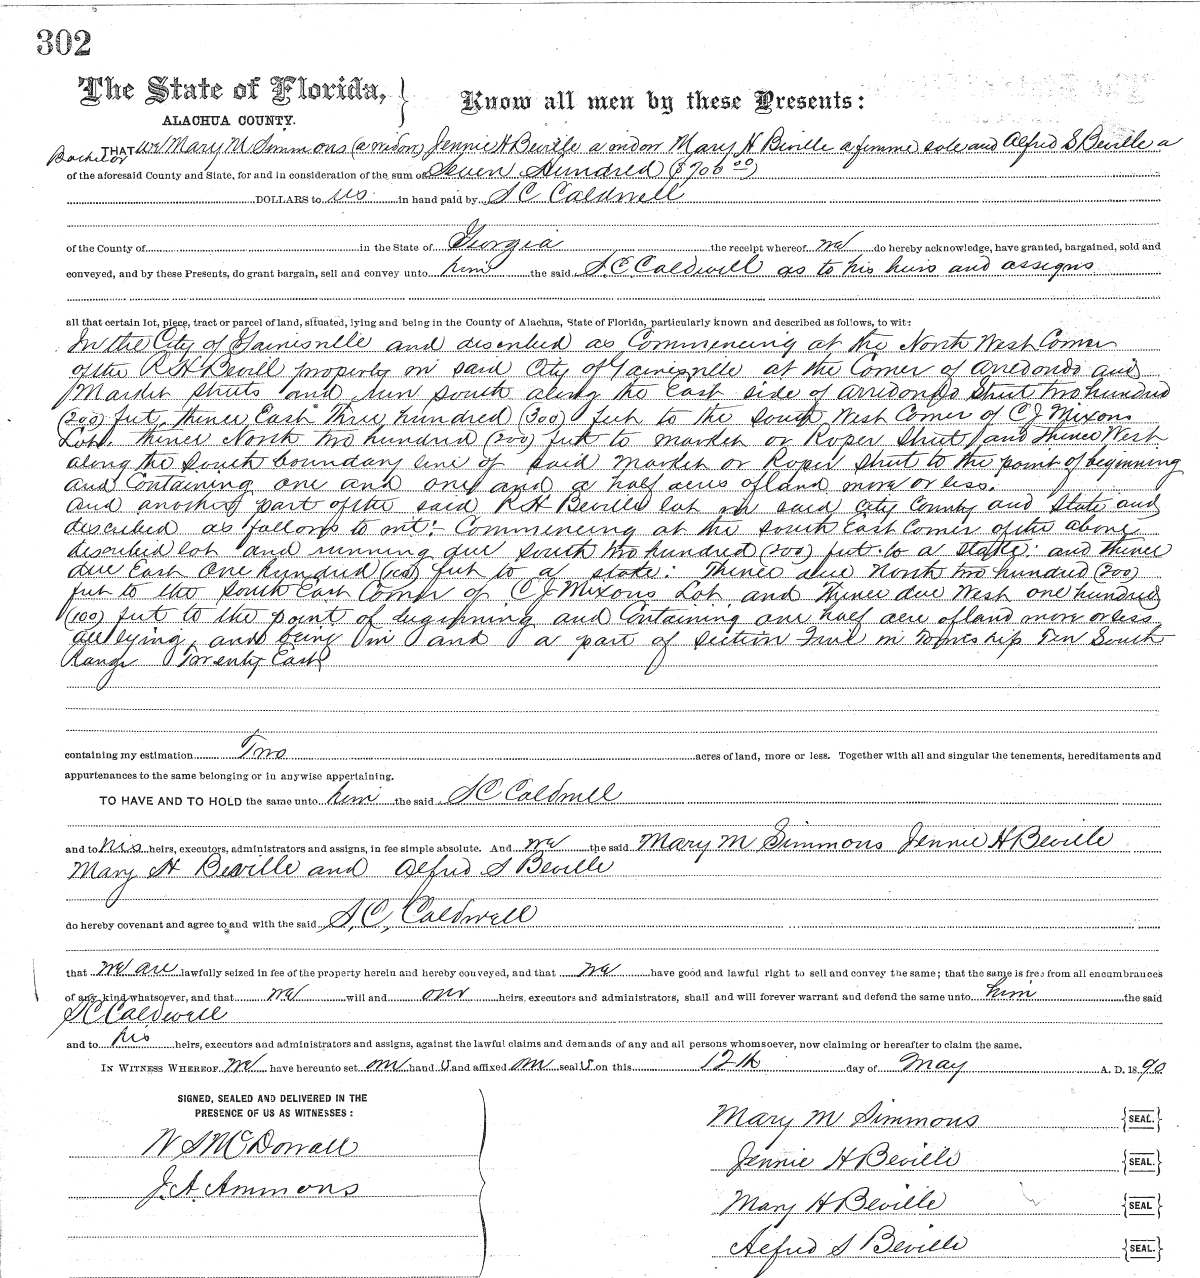 302
The State of Florida, } Know all men by these Presents:
ALACHUA COUNTY.
THAT we Mary M Simmons (a widow) Jennie H Beville a widow Mary H Beville a femme sole and Alfred S Beville a
Bachelor
of the aforesaid County and State, for and in consideration of the sum of Seven Hundred ($700 00)
DOLLARS to us in hand paid by S C Caldwell
of the County of in the State of Georgia the receipt whereof we do hereby acknowledge, have granted, bargained, sold and
conveyed, and by these Presents, do grant bargain, sell and convey unto him the said S. C. Caldwell as to his heirs and assigns
all that certain lot, piece, tract or parcel of land, situated, lying and being in the County of Alachua, State of Florida, particularly known and described as follows, to wit:
In the City of Gainesville and discribed as Commencing at the North West Corner
of the R H Bevill property in said City of Gainesville at the Corner of Arredondo and
Market streets and run south along the East side of Arredondo Street two hundred
(200) feet, thence East three hundred (300) feet to the South West Corner of C J Mixons
Lot. Thence North two hundred (200) feet to market or Roper Street, and Thence West
along the South boundary line of said market or Roper street to the point of beginning
and Containing one and one and a half acres of land more or less.
And another part of the said R H Beville lot in said City County and State and
described as follows to wit: Commencing at the South East Corner of the above
discribed lot and running due south two hundred (200) feet to a stake: and Thence
due East One hundred (100) feet to a stake: Thence due North two hundred (200)
feet to the South East Corner of C J Mixons Lot and Thence due West one hundred
(100) feet to the point of beginning and Containing one half acre of land more or less
all lying and being in and a part of Section Five in Township Ten South
Range Twenty East
containing my estimation Two acres of land, more or less. Together with all and singular the tenements, hereditaments and
appurtenances to the same belonging or in anywise appertaining.
TO HAVE AND TO HOLD the same unto him the said S C Caldwell
and to his heirs, executors, administrators and assigns, in fee simple absolute. And we the said Mary M Simmons Jennie H Beville
Mary H Beville and Alfred S Beville
do hereby covenant and agree to and with the said S. C. Caldwell
that we are lawfully seized in fee of the property herein and hereby conveyed, and that we have good and lawful right to sell and convey the same; that the same is free from all encumbrances
of any kind whatsoever, and that we will and our heirs, executors and administrators, shall and will forever warrant and defend the same unto him the said
S C Caldwell
and to his heirs, executors and administrators and assigns, against the lawful claims and demands of any and all persons whomsoever, now claiming or hereafter to claim the same.
IN WITNESS WHEREOF we have hereunto set our hand s and affixed our seal s on this 12th day of May A. D. 18 90
SIGNED, SEALED AND DELIVERED IN THE
PRESENCE OF US AS WITNESSES:
W S McDowall
J. A. Ammons
Mary M Simmons {SEAL.}
Jennie H Beville {SEAL.}
Mary H Beville {SEAL}
Alfred S Beville {SEAL.}